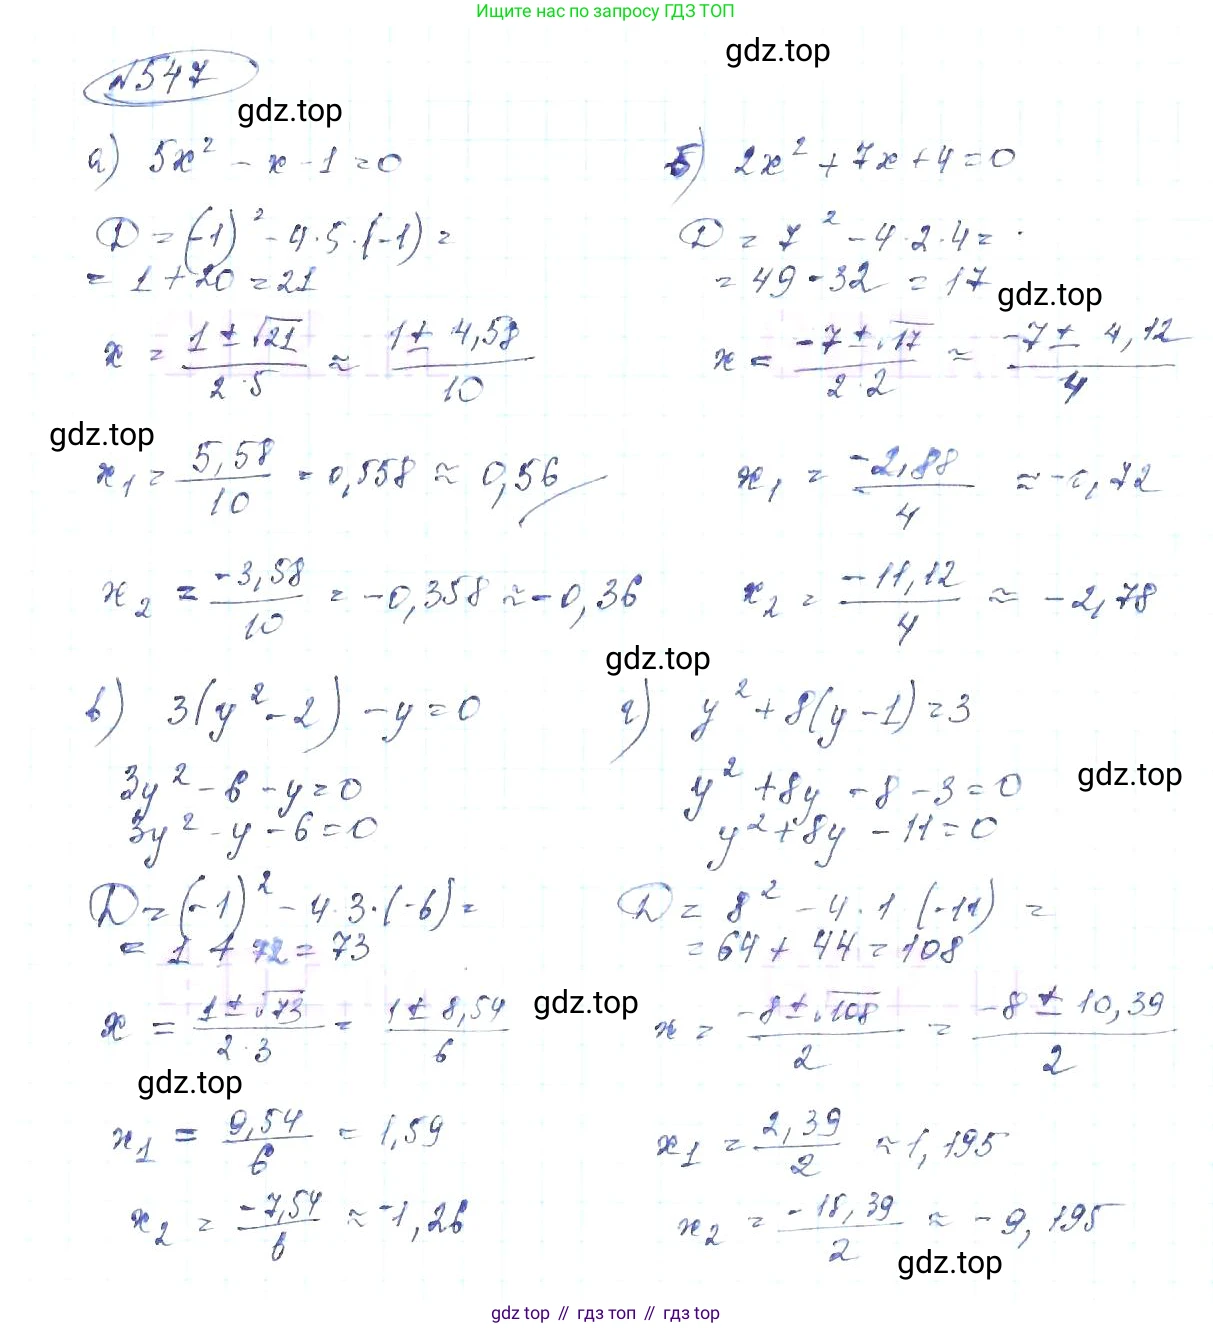 Ищите нас по запросу ГДЗ ТОП
gdz.top
№547
gdz.top
а) 5x² - x - 1 = 0
D = (-1)² - 4·5·(-1) =
= 1 + 20 = 21
x = (1 ± √21)/(2·5) ≈ (1 ± 4,58)/10
gdz.top
x₁ = 5,58/10 = 0,558 ≈ 0,56
x₂ = -3,58/10 = -0,358 ≈ -0,36
б) 2x² + 7x + 4 = 0
D = 7² - 4·2·4 =
= 49 - 32 = 17
gdz.top
x = (-7 ± √17)/(2·2) ≈ (-7 ± 4,12)/4
x₁ = -2,88/4 ≈ -0,72
x₂ = -11,12/4 ≈ -2,78
gdz.top
в) 3(y² - 2) - y = 0
3y² - 6 - y = 0
3y² - y - 6 = 0
D = (-1)² - 4·3·(-6) =
= 1 + 72 = 73
x = (1 ± √73)/(2·3) = (1 ± 8,54)/6
gdz.top
gdz.top
x₁ = 9,54/6 = 1,59
x₂ = -7,54/6 ≈ -1,26
г) y² + 8(y - 1) = 3
gdz.top
y² + 8y - 8 - 3 = 0
y² + 8y - 11 = 0
D = 8² - 4·1·(-11) =
= 64 + 44 = 108
x = (-8 ± √108)/2 = (-8 ± 10,39)/2
x₁ = 2,39/2 ≈ 1,195
x₂ = -18,39/2 ≈ -9,195
gdz.top
gdz top // гдз топ // гдз top